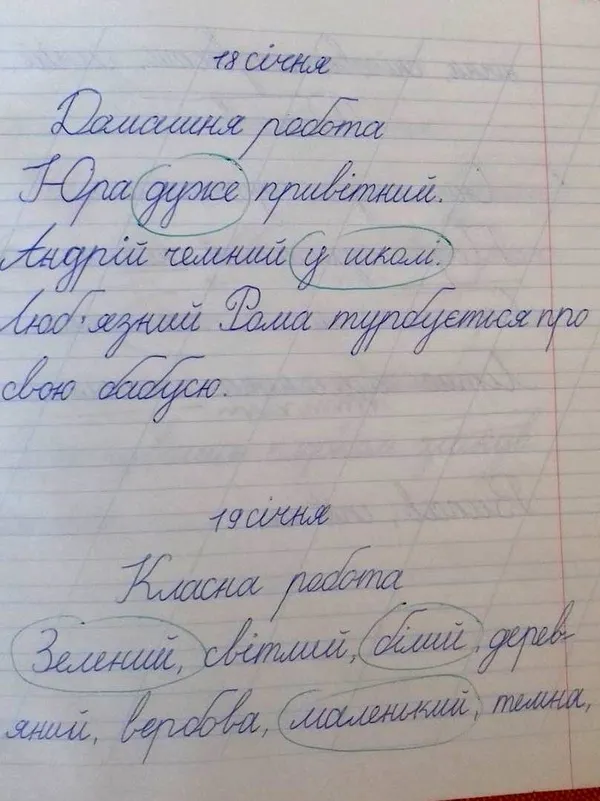 18 січня
Домашня робота
Юра дуже привітний.
Андрій чемний у школі.
Люб'язний Рома турбується про
свою бабусю.
19 січня
Класна робота
Зелений, світлий, білий, дерев-
яний, вербова, маленький, темна,